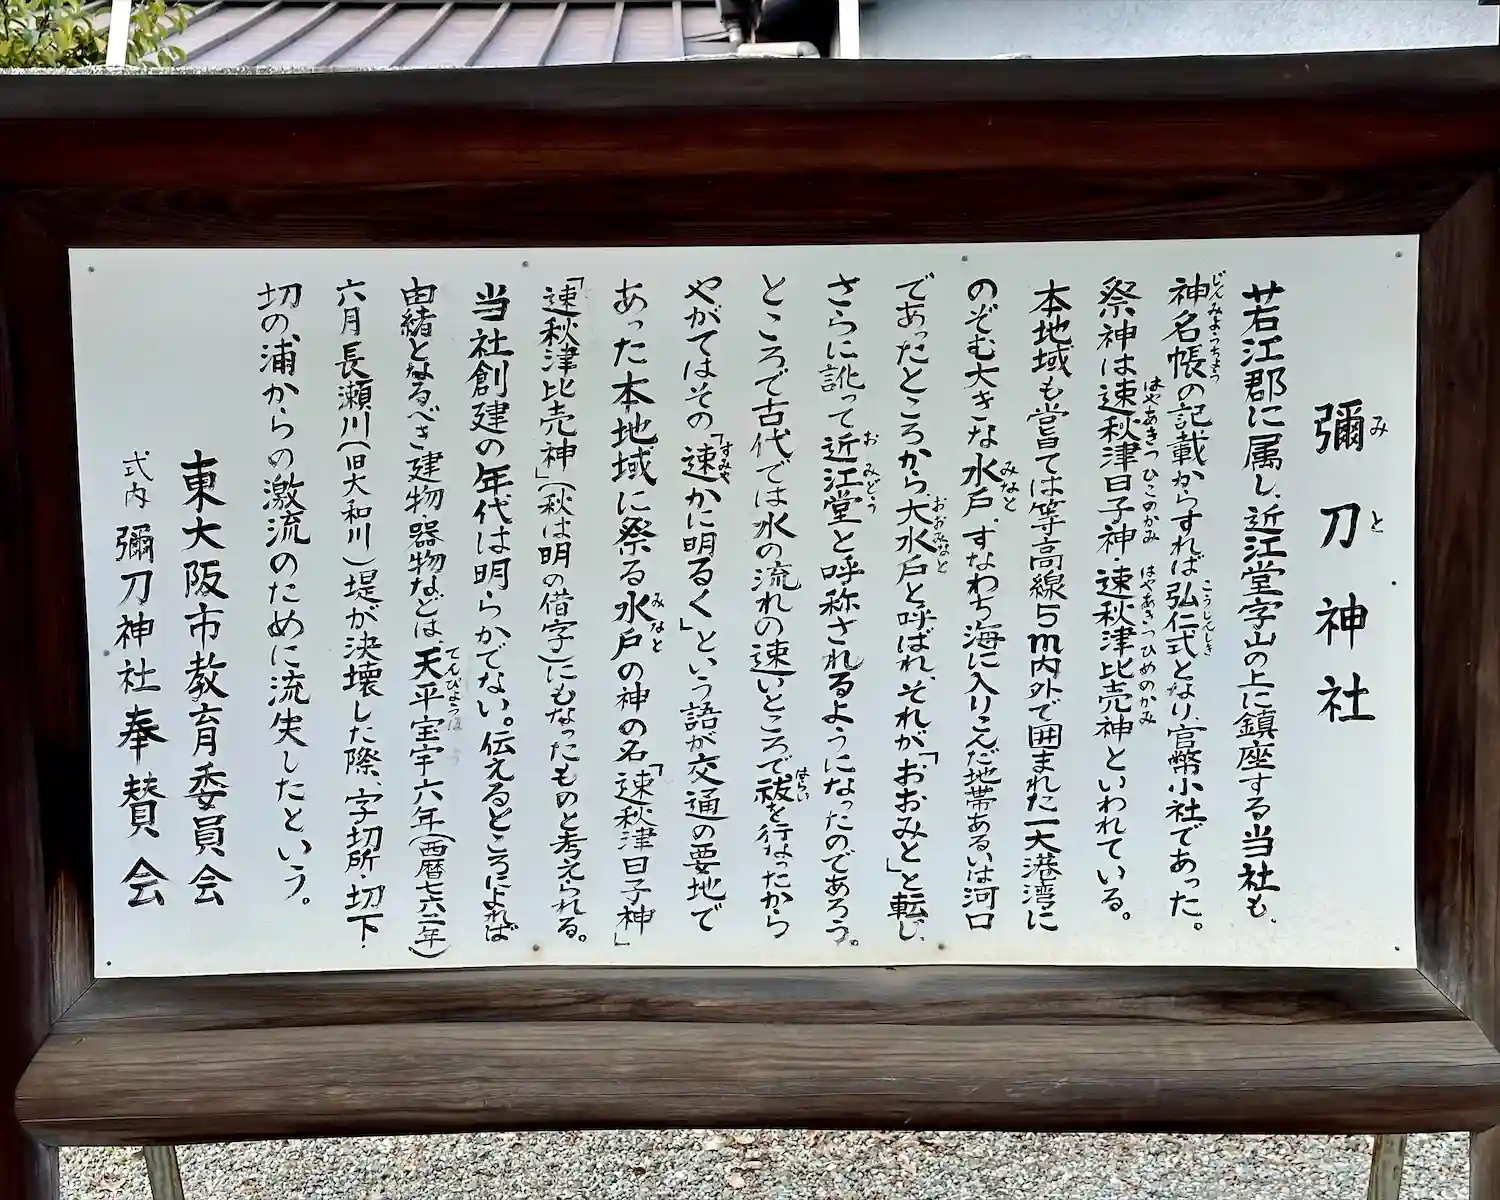 彌刀神社
若江郡に属し、近江堂字山の上に鎮座する当社も、
神名帳の記載からすれば弘仁式となり、官幣小社であった。
祭神は速秋津日子神・速秋津比売神といわれている。
本地域も嘗ては等高線5m内外で囲まれた一大港湾に
のぞむ大きな水戸、すなわち海に入りこんだ地帯あるいは河口
であったところから大水戸と呼ばれ、それが「おおみと」と転じ、
さらに訛って近江堂と呼称されるようになったのであろう。
ところで古代では水の流れの速いところで祓を行なったから
やがてはその「速かに明るく」という語が交通の要地で
あった本地域に祭る水戸の神の名「速秋津日子神」
「速秋津比売神」(秋は明の借字)にもなったものと考えられる。
当社創建の年代は明らかでない。伝えるところによれば
由緒となるべき建物器物などは、天平宝宇六年(西暦七六二年)
六月長瀬川(旧大和川)堤が決壊した際、字切所・切下・
切の浦からの激流のために流失したという。
東大阪市教育委員会
式内 彌刀神社奉賛会